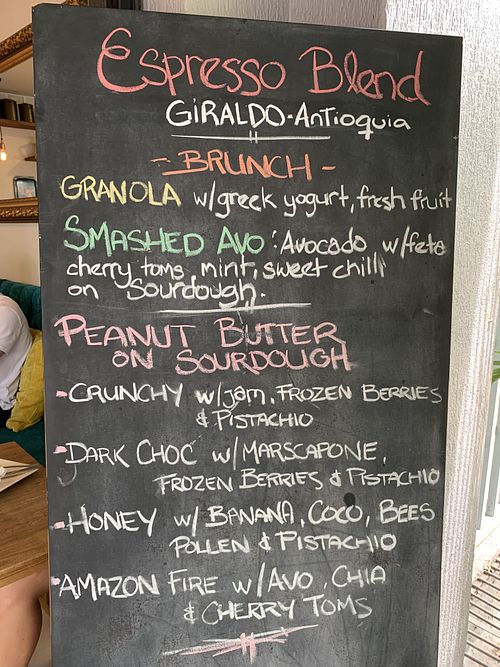 Espresso Blend
GIRALDO-Antioquia
- BRUNCH -
GRANOLA w/greek yogurt, fresh fruit
SMASHED AVO: Avocado w/feta
cherry toms, mint, sweet chilli
on Sourdough.
PEANUT BUTTER
ON SOURDOUGH
-CRUNCHY w/jam, FROZEN BERRIES
& PISTACHIO
-DARK CHOC w/MARSCAPONE,
FROZEN BERRIES & PISTACHIO
-HONEY w/ BANANA, COCO, BEES
POLLEN & PISTACHIO
-AMAZON FIRE w/AVO, CHIA
& CHERRY TOMS